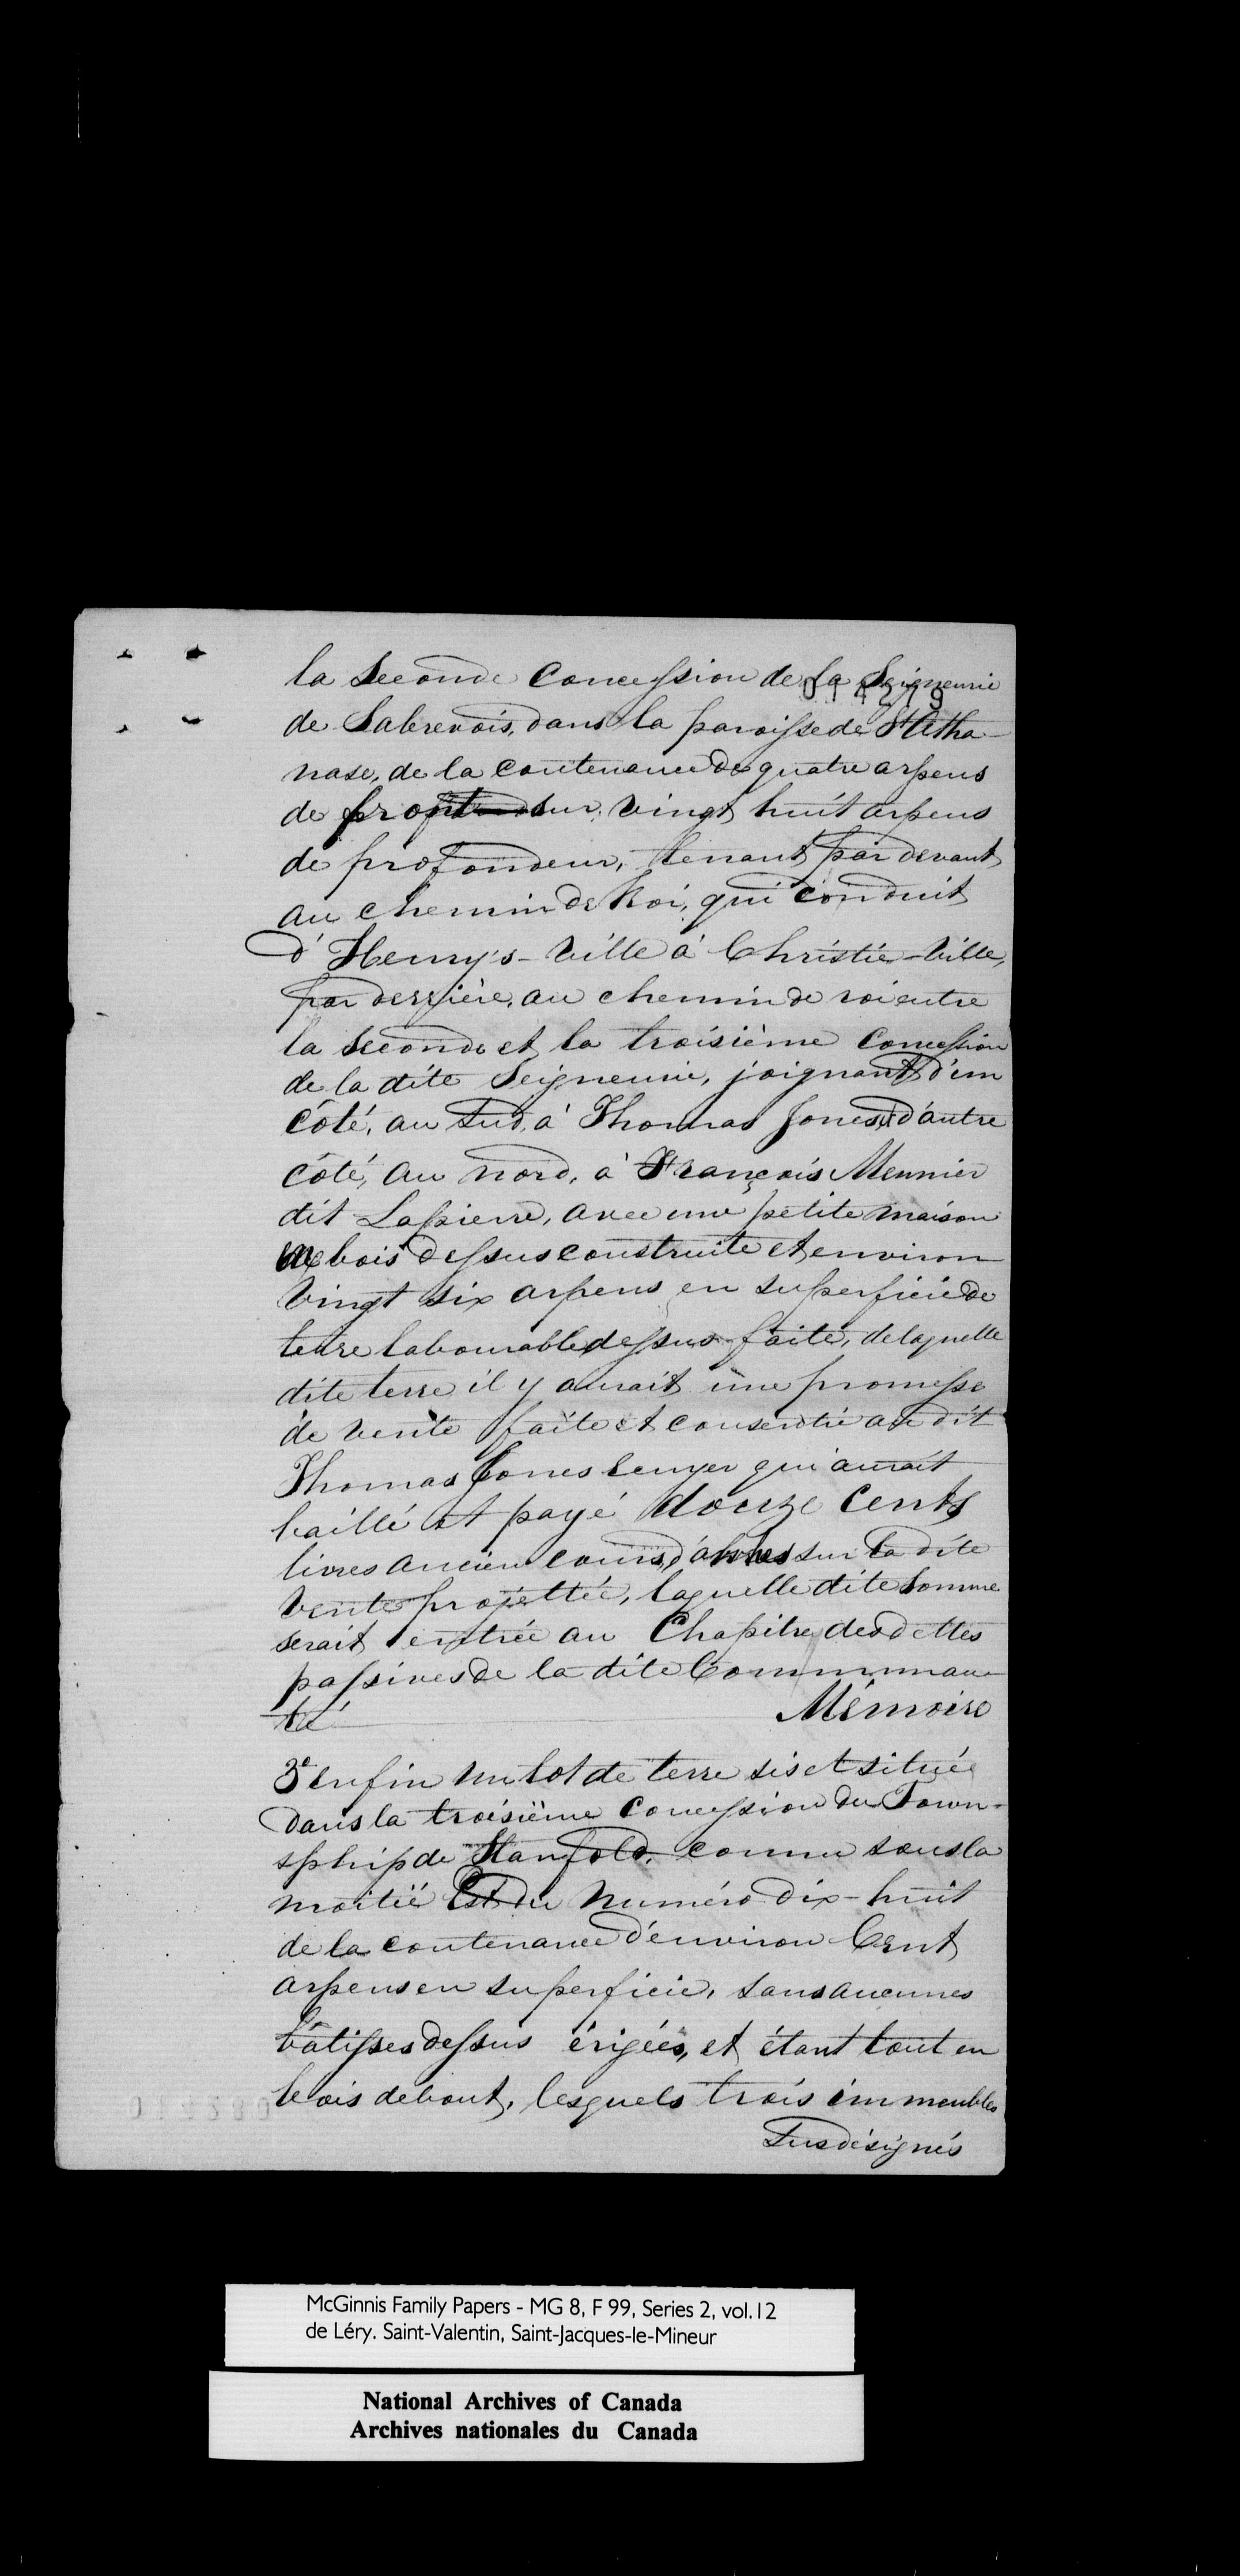 la Seconde Concession de la Seigneurie
de Sabrevois, dans la paroisse de St Atha-
nase, de la contenance de quatre arpens
de front sur vingt huit arpens
de profondeur, tenant par devant
au chemin de Roi, qui conduit
d'Henry's-Ville à Christie-Ville,
par derrière, au chemin de roi entre
la Seconde et la troisième Concession
de la dite Seigneurie, joignant d'un
côté, au Sud, à Thomas Jones, d'autre
côté, au nord, à François Meunier
dit Lapierre, avec une petite maison
de bois dessus construite et environ
vingt six arpens en superficie de
terre labourable dessus faite, de laquelle
dite terre il y aurait une promesse
de vente faite et consentie au dit
Thomas Jones Senyer qui aurait
baillé et payé douze Cents
livres ancien cours, d'arrhes sur la dite
vente projettée, laquelle dite Somme
serait entrée au Chapitre des dettes
passives de la dite Communau-
té Mémoire
3e enfin un lot de terre sis et situé
dans la troisième Concession du Town-
sphip de Stanfold, connu sous la
moitié Est du Numéro dix-huit
de la contenance d'environ Cent
arpens en superficie, sans aucunes
bâtisses dessus érigées, et étant tout en
bois debout, lesquels trois immeubles
Susdésignés
McGinnis Family Papers - MG 8, F 99, Series 2, vol.12
de Léry. Saint-Valentin, Saint-Jacques-le-Mineur
National Archives of Canada
Archives nationales du Canada